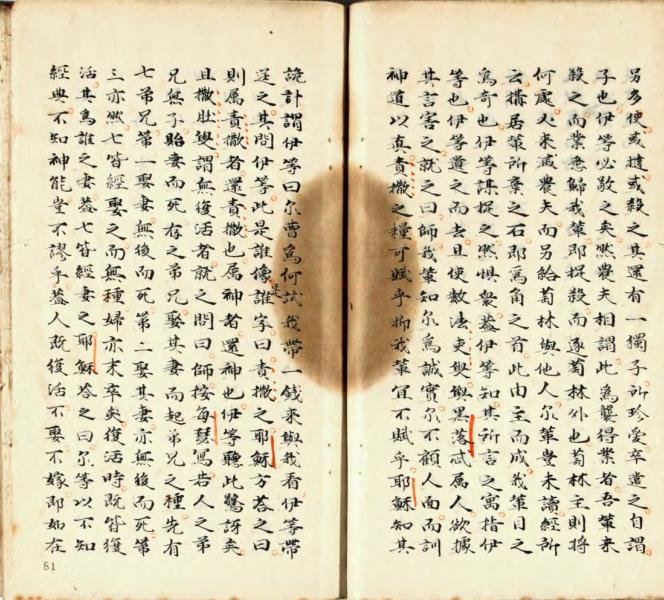 另多使或撻或殺之其還有一獨子所珍愛卒遣之自謂
子也伊等必敬之矣然農夫相謂此為襲得業者吾輩来
殺之而業悉歸我輩即捉殺而逐萄林外也萄林主則将
何處来滅農夫而另給萄林與他人尔輩未讀經所
云搆居輩所棄之石即為角之首此由主而成我輩目之
為奇也伊等謀捉之然惧眾蓋伊等知其所言之寓指伊
等也伊等遺之而去且使数法吏與黑落忒属人欲據
其言害之就之曰師我輩知尔為誠實尔不顧人面而訓
神道以真責撒之糧可賦乎抑我輩宜不賦乎耶穌知其
詭計謂伊等曰尔曹為何試我帶一錢来與我看伊等帶
送之其問伊等此是誰像是誰字曰責撒之耶穌方荅之曰
則属責撒者還責撒也属神者還神也伊等聽此驚訝矣
且撒肚叟謂無復活者就之問曰師按每瑟寫若人之弟
兄無子貽妻而死存之弟兄娶其妻而起弟兄之種先有
七弟兄第一娶妻無後而死第二娶其妻亦無後而死第
三亦然七皆經娶之而無種婦亦末卒矣復活時既皆復
活其為誰之妻蓋七皆經妻之耶穌荅之曰尔等以不知
經典不知神能豈不謬乎蓋人既復活不娶不嫁即如在
81